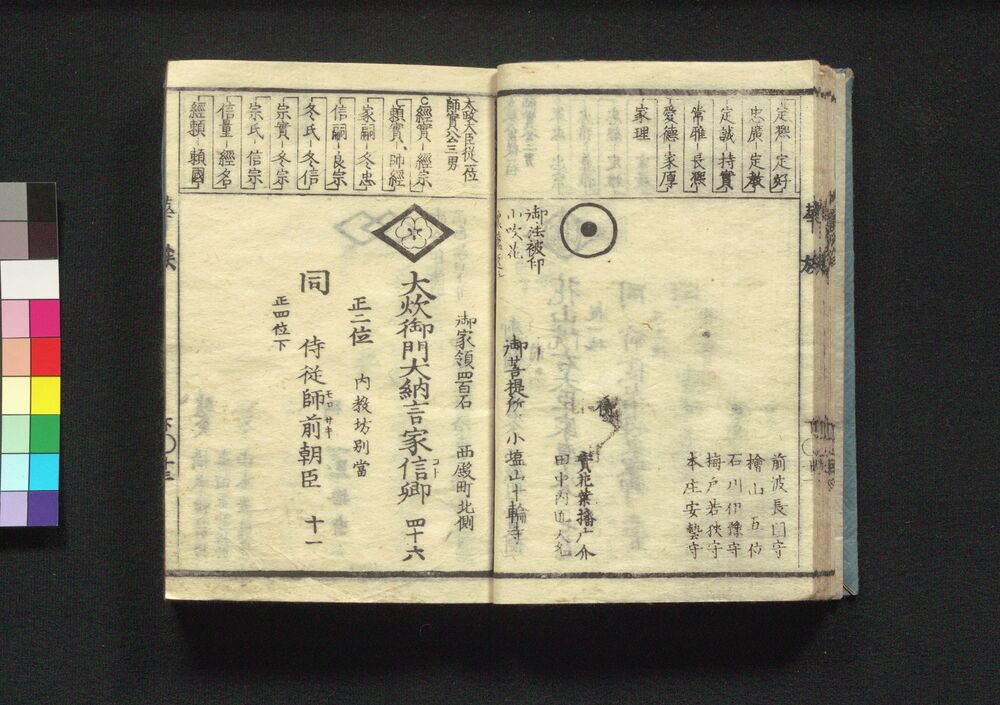 定凞-定好
忠廣-定教
定誠 持實
常雅-長凞
愛德-家厚
家理
前波長門守
檜山百位
石川伊豫守
梅戸若狹守
本庄安藝守
田中内匠大允
御法被仰
小吹花
御菩提所 小塩山十輪寺
太政大臣従一位
師實公三男
經實-經宗
頼實 師經
家嗣-冬忠
信嗣-良宗
冬氏-冬信
宗實-冬宗
宗氏-信宗
信量-經名
經頼 頼國
御家領四百石 西殿町北側
大炊御門大納言家信卿 四十六
コト
正二位 内教坊別當
同 侍従師前朝臣 十一
モロサキ
正四位下
華族